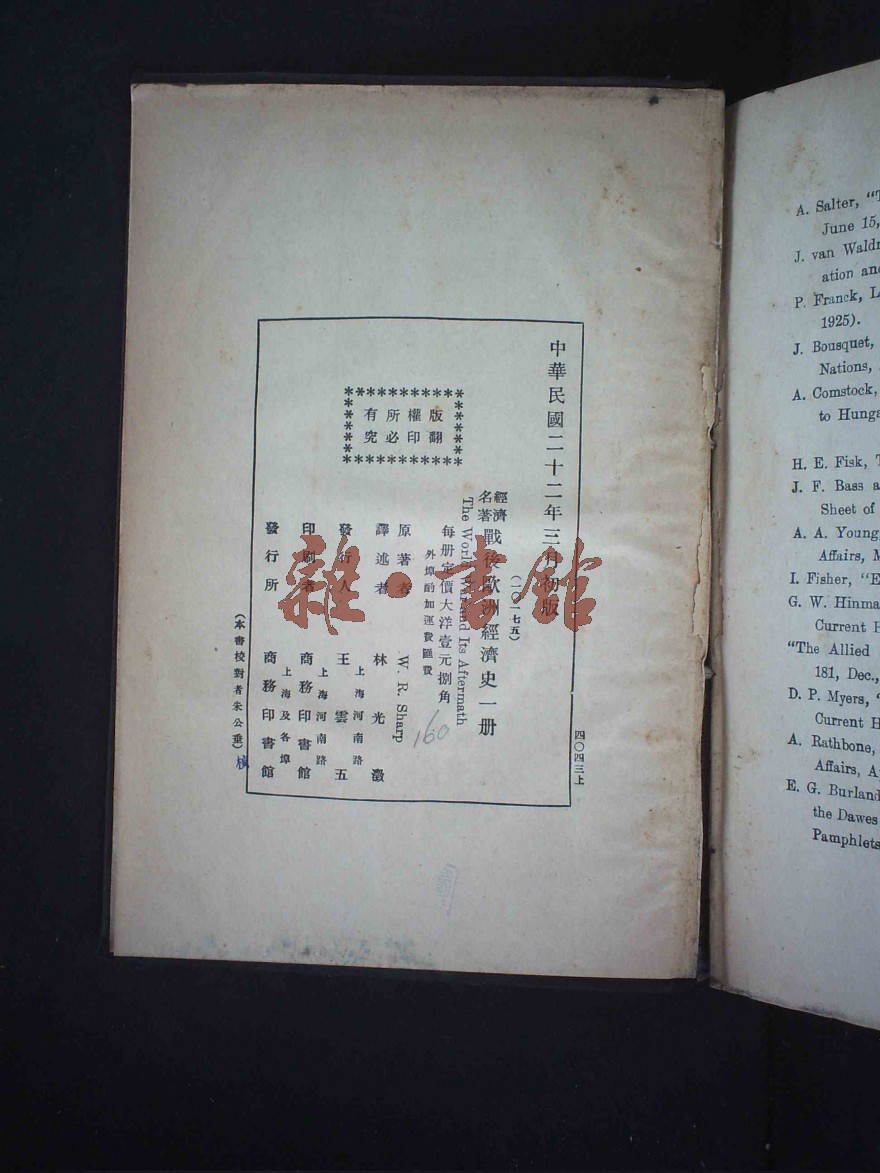 中華民國二十二年三月初版
四〇四三上
(一〇一七五)
經濟名著 戰後歐洲經濟史一册
The World War and Its Aftermath
每册定價大洋壹元捌角
外埠酌加運費匯費
160
原著者 W. R. Sharp
譯述者 林光澂
發行人 王雲五
上海河南路
印刷者 商務印書館
上海河南路
發行所 商務印書館
上海及各埠
版權所有
翻印必究
(本書校對者朱公垂)
雜·書館
A. Salter,
June 15,
J. van
ation and
P. Franck,
1925).
J. Bousquet,
Nations,
A. Comstock,
to
H. E. Fisk,
J. F. Bass
Sheet of
A. A. Young,
Affairs,
I. Fisher,
G. W. Hinman
Current
"The Allied
181, Dec.,
D. P. Myers,
Current
A. Rathbone,
Affairs,
E. G. Burland
the Dawes
Pamphlets